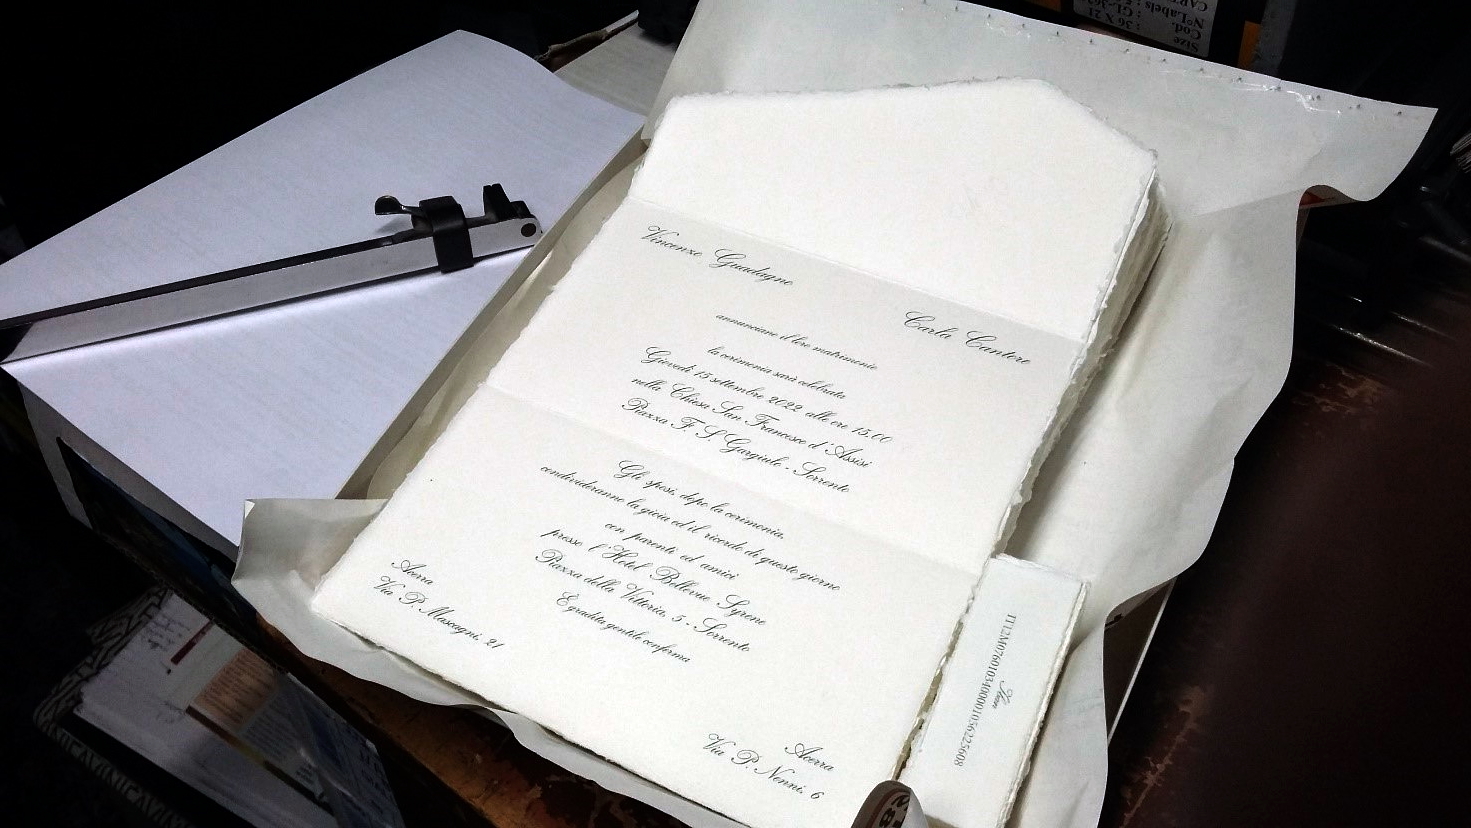 Size
Cod. : 36 X 21
N°Labels
Vincenzo Guadagno
Carla Cantore
annunciano il loro matrimonio
la cerimonia sarà celebrata
Giovedì 15 settembre 2022 alle ore 15.00
nella Chiesa San Francesco d'Assisi
Piazza F. S. Gargiulo - Sorrento
Gli sposi, dopo la cerimonia,
condivideranno la gioia ed il ricordo di questo giorno
con parenti ed amici
presso l'Hotel Bellevue Syrene
Piazza della Vittoria, 5 - Sorrento
È gradita gentile conferma
Acerra
Via P. Mascagni, 21
Acerra
Via P. Nenni, 6
Iban
IT12M0760103400001056225608